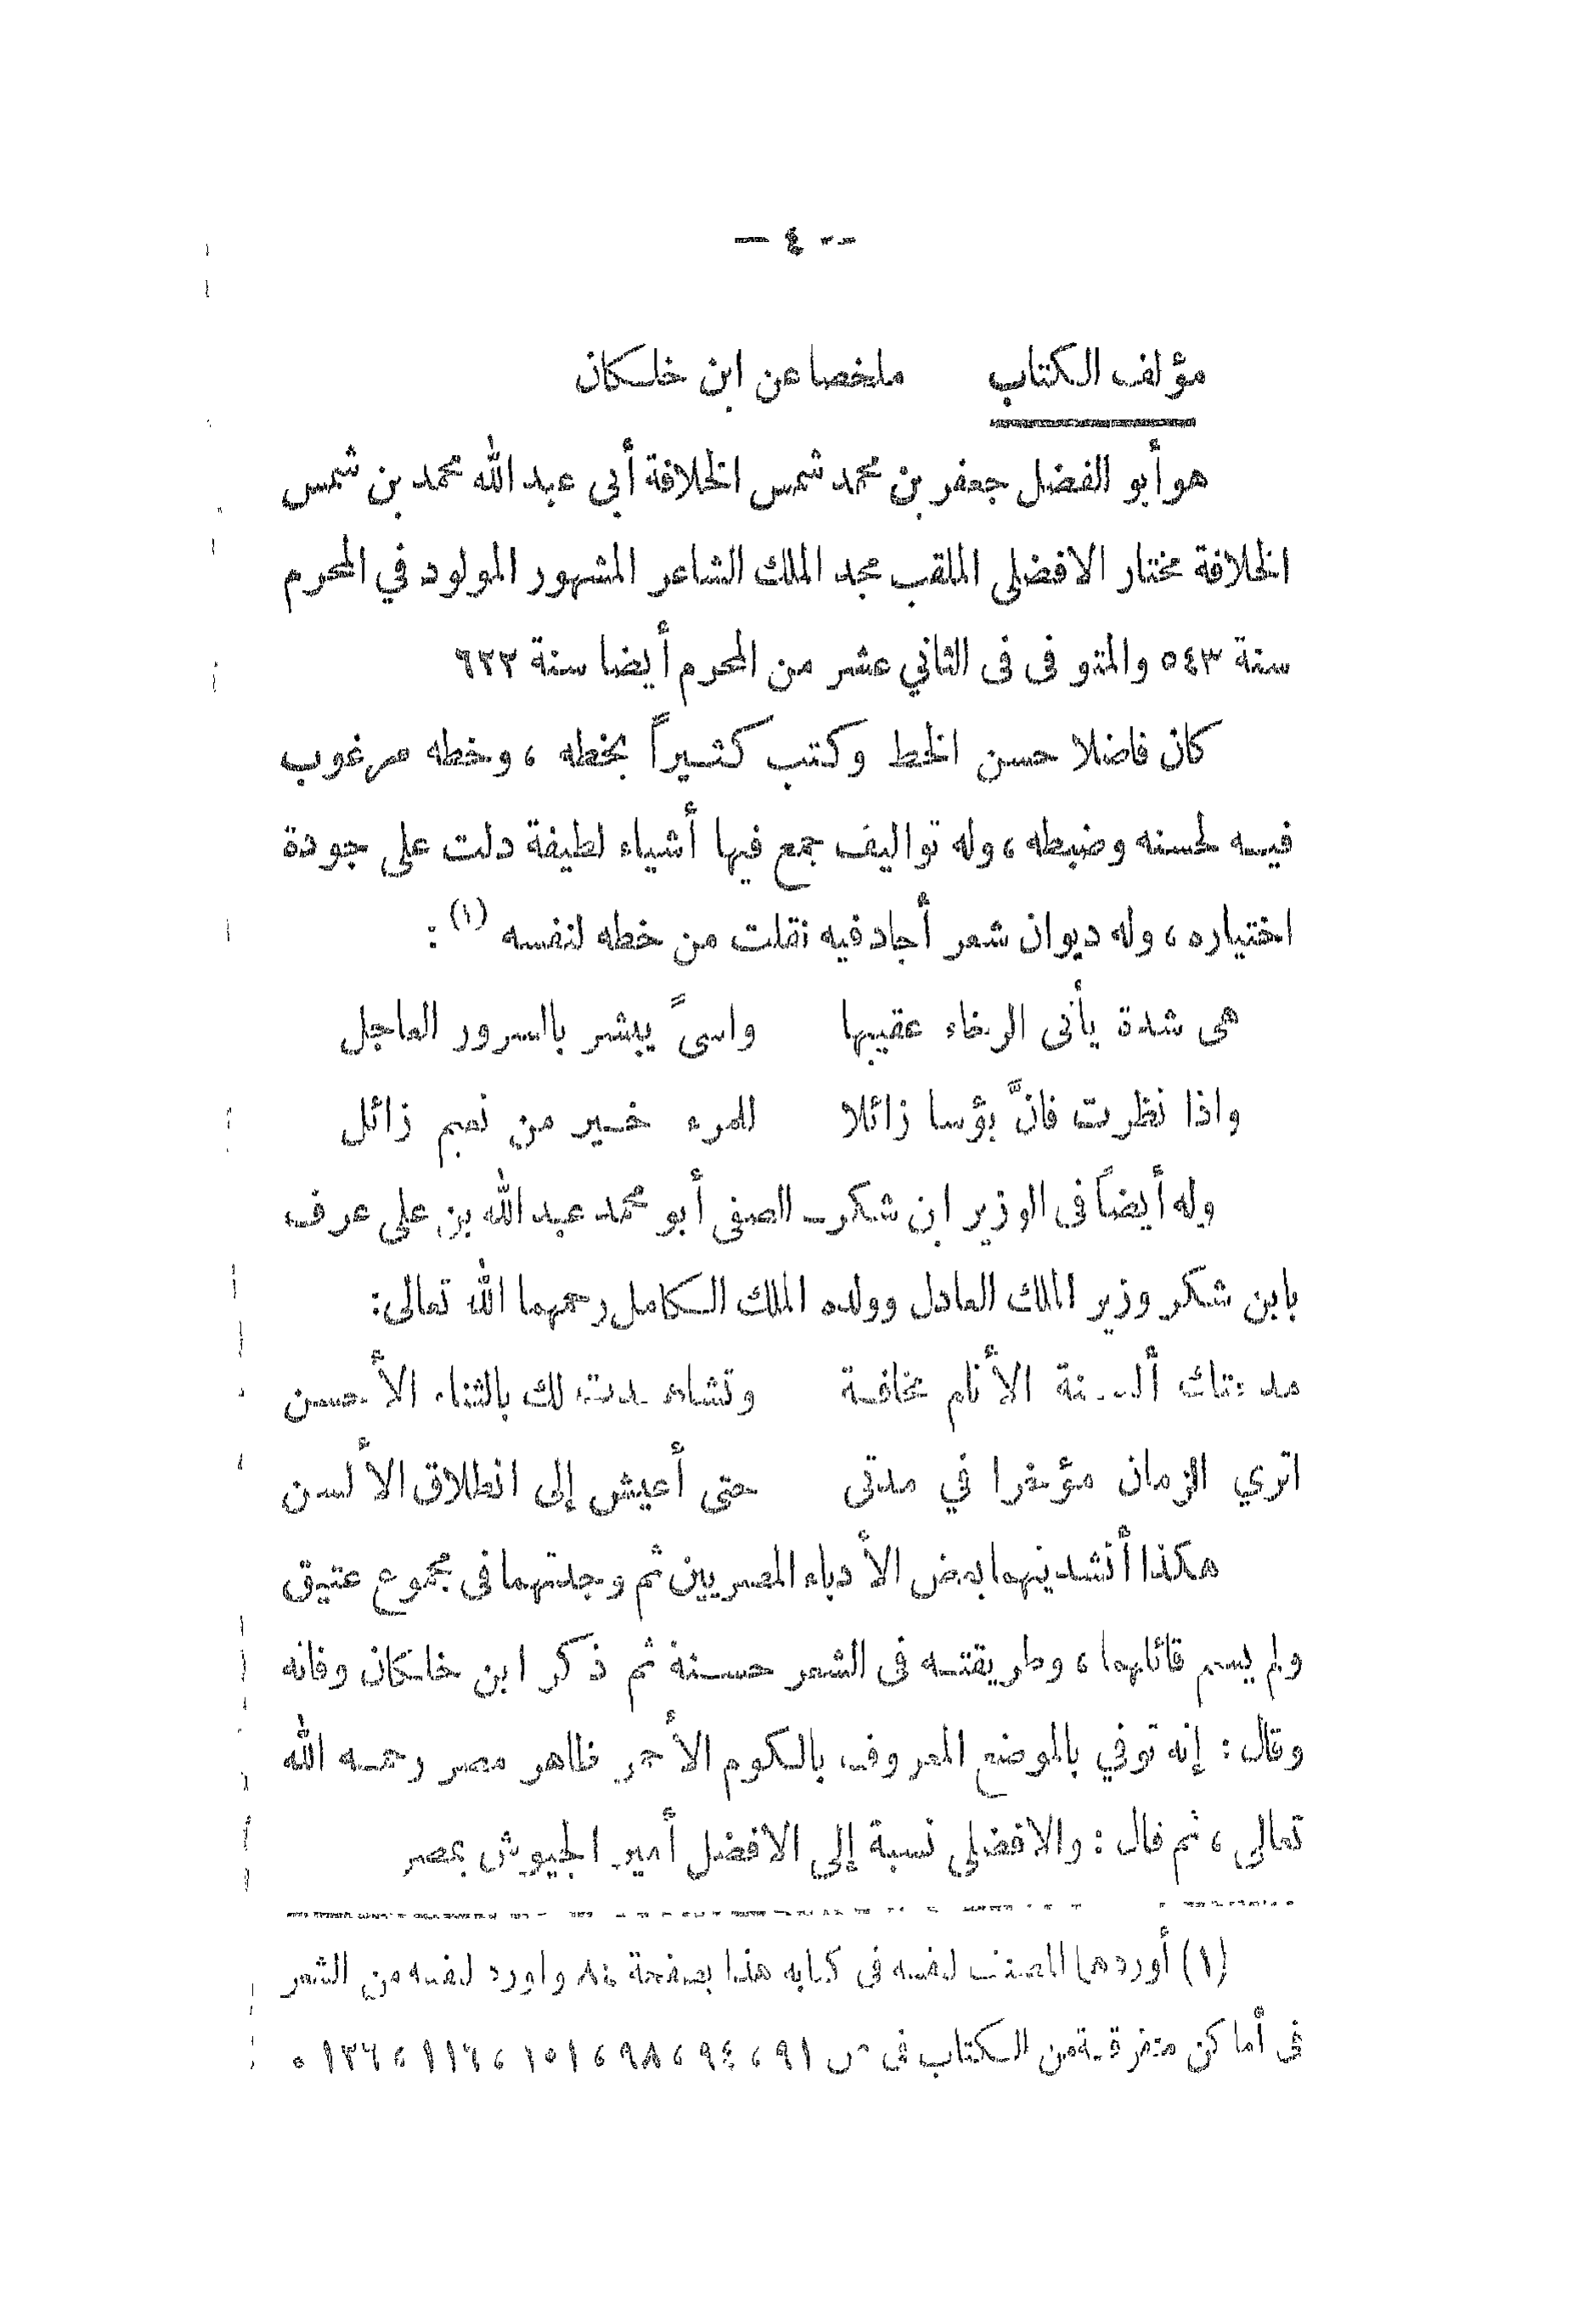 — ٤ —
مؤلف الكتاب ملخصا عن ابن خلكان
هو أبو الفضل جعفر بن محمد شمس الخلافة أبي عبد الله محمد بن شمس
الخلافة مختار الافضلى الملقب مجد الملك الشاعر المشهور المولود في المحرم
سنة ٥٤٣ والمتوفى فى الثاني عشر من المحرم أيضا سنة ٦٢٢
كان فاضلا حسن الخط وكتب كثيراً بخطه ، وخطه مرغوب
فيه لحسنه وضبطه ، وله تواليف جمع فيها أشياء لطيفة دلت على جودة
اختياره ، وله ديوان شعر أجاد فيه نقلت من خطه لنفسه (١) :
هى شدة يأتى الرخاء عقيبها واسىً يبشر بالسرور العاجل
واذا نظرت فانَّ بؤسا زائلا للمرء خير من نعيم زائل
وله أيضاً فى الوزير ابن شكر ـ الصفى أبو محمد عبد الله بن على عرف
بابن شكر وزير الملك العادل وولده الملك الكامل رحمهما الله تعالى :
مدحتك ألسنة الأنام مخافة وتشاهدت لك بالثناء الأحسن
اترى الزمان مؤخرا في مدتى حتى أعيش إلى انطلاق الألسن
هكذا أنشدنيهما بعض الأدباء المصريين ثم وجدتهما فى مجموع عتيق
ولم يسم قائلهما ، وطريقته فى الشعر حسنة ثم ذكر ابن خلكان وفاته
وقال : إنه توفي بالموضع المعروف بالكوم الأحمر ظاهر مصر رحمه الله
تعالى ، ثم قال : والافضلى نسبة إلى الافضل أمير الجيوش بمصر
(١) أوردهما المصنف لنفسه فى كتابه هذا بصفحة واورد لنفسه من الشعر
فى أماكن متفرقة من الكتاب في ص ٩١ ، ٩٤ ، ٩٨ ، ١٠١ ، ١١٦ ، ١٣٦ .